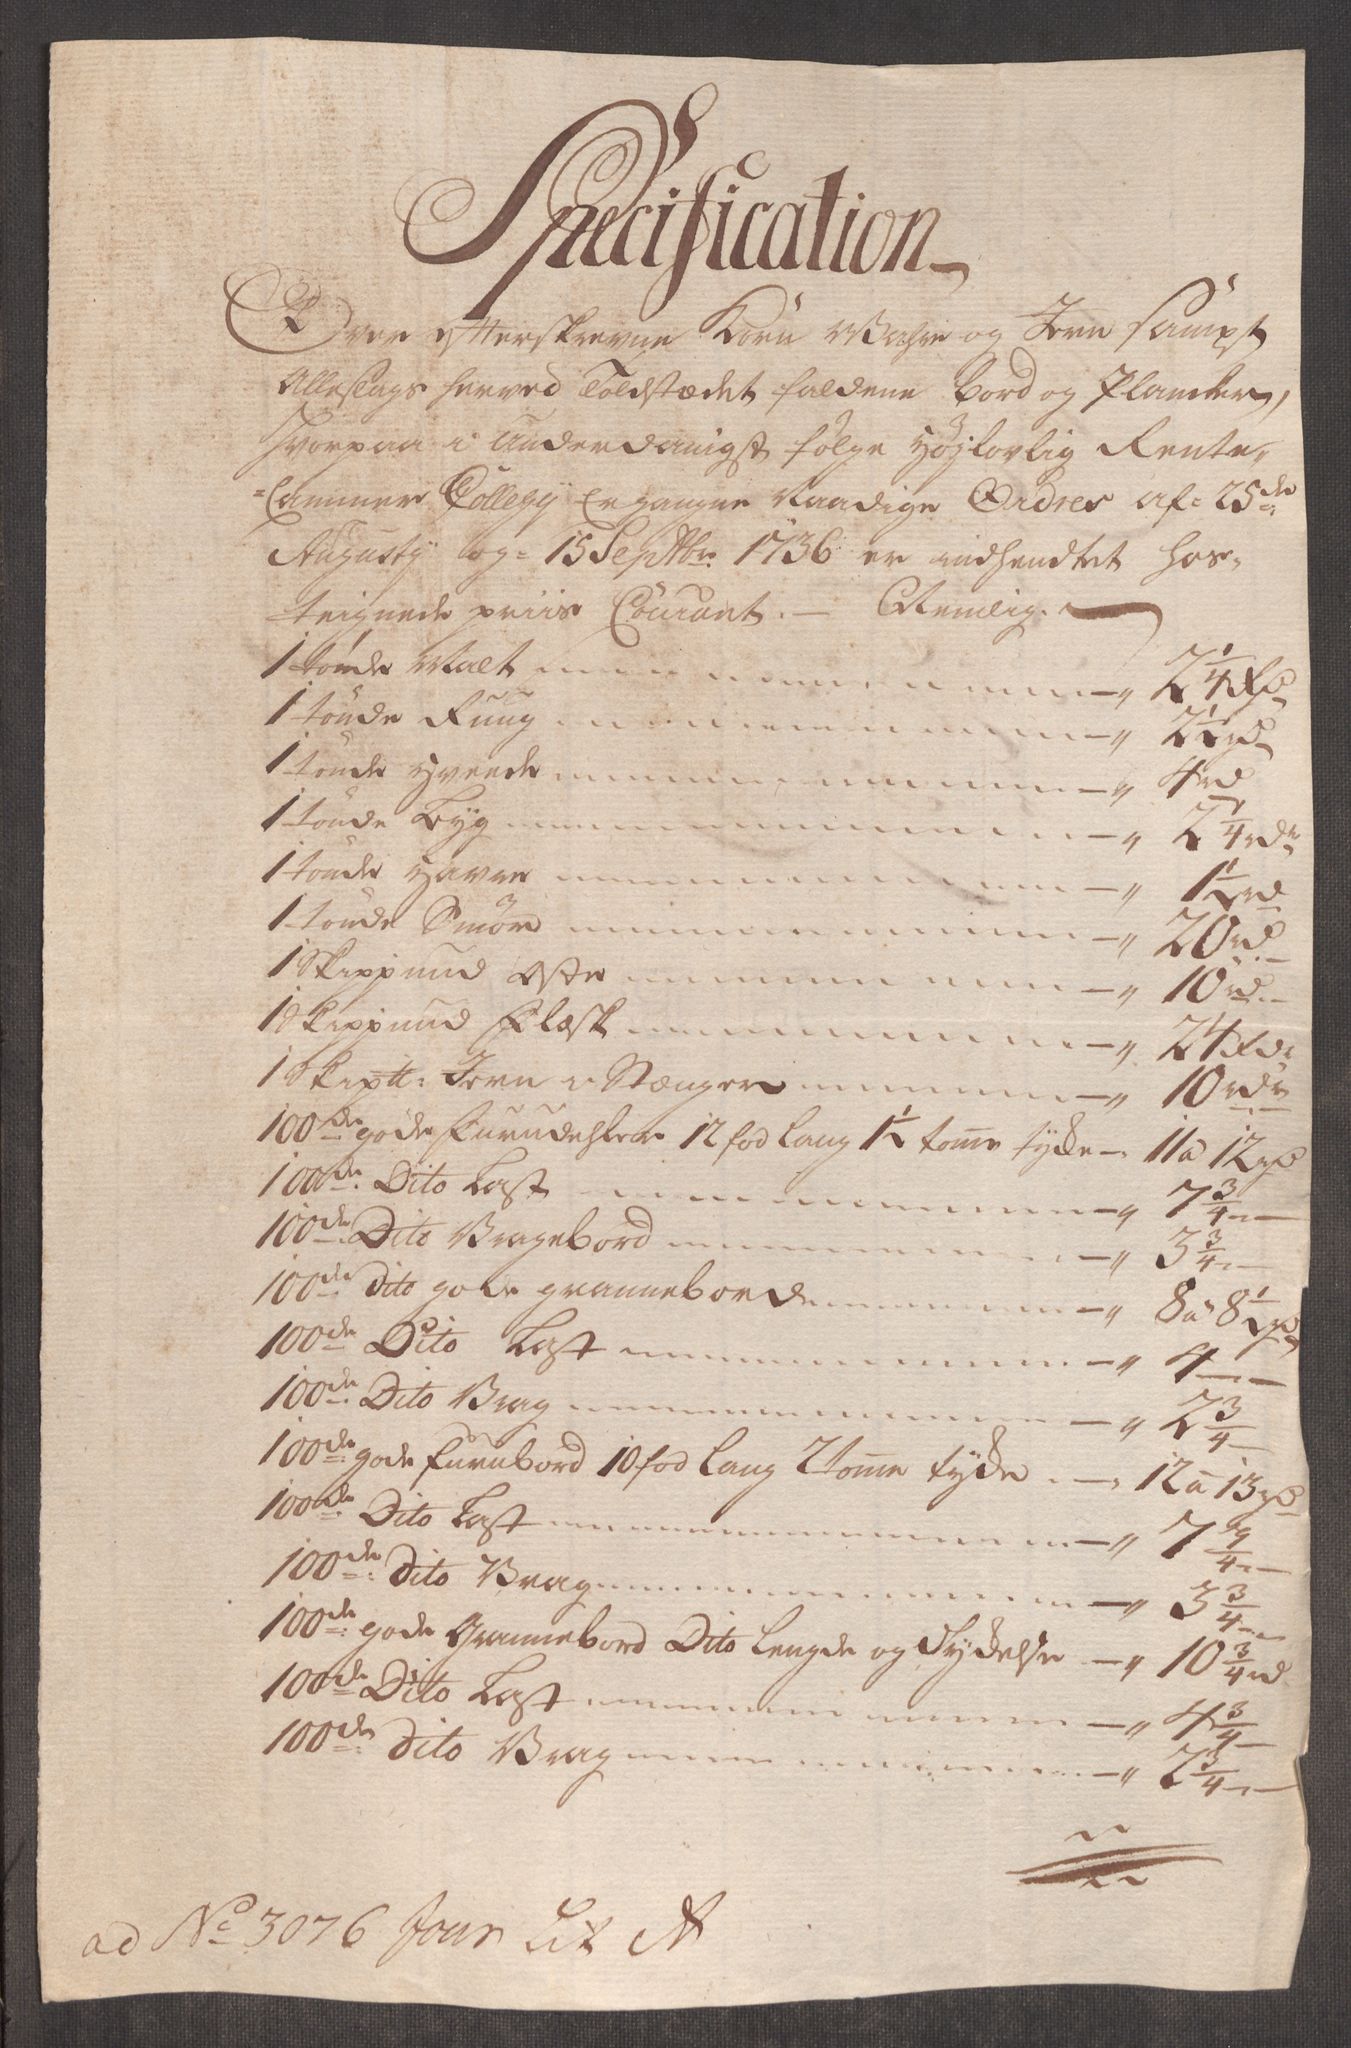 Specification
Over efterskrevne Korn Wahre og Jern sampt
Alleslags herved Toldstædet faldene bord og Plancker,
Hvorpaa i underdanigst følge Høylovlig Rente
Cammer Collegij Ergangne Naadige Ordres af 25de
Augustij og 15 Septbr. 1736 er indhendtet hos-
teignede priis Courant. – Nemlig.
1 tønde Malt – 2 1/4 rd
1 tønde Rug – 2 1/2 rd
1 tønde Hvede – 4 rd
1 tønde Byg – 2 1/4 rdr
1 tønde Havre – 1 1/2 rd
1 tønde Smør – 20 rd.
1 Skippund Oste – 10 rd.
1 Skippund Flæsk – 24 rdr
1 Skip℔: Jern i Stænger – 10 rdr
100de gode Furudehler 12 fod lang 1 1/2 tomme tycke – 11 a 12 rd
100de Dito Last – 7 3/4 –
100de Dito Vragebord – 3 3/4 –
100de dito gode grannebord – 8 a 8 1/2 rd
100de Dito Last – 4 –
100de Dito Vrag – 2 3/4 –
100de gode Furubord 10 fod lang 2 tomme tycke – 12 a 13 rd
100de Dito Last – 7 3/4 –
100de Dito Vrag – 3 3/4 –
100de gode Grannebord Dito lengde og Tyckelse – 10 3/4 rd
100de Dito Last – 4 3/4 –
100de Dito Vrag – 2 3/4 –
ad No 3076 Jour Lit A